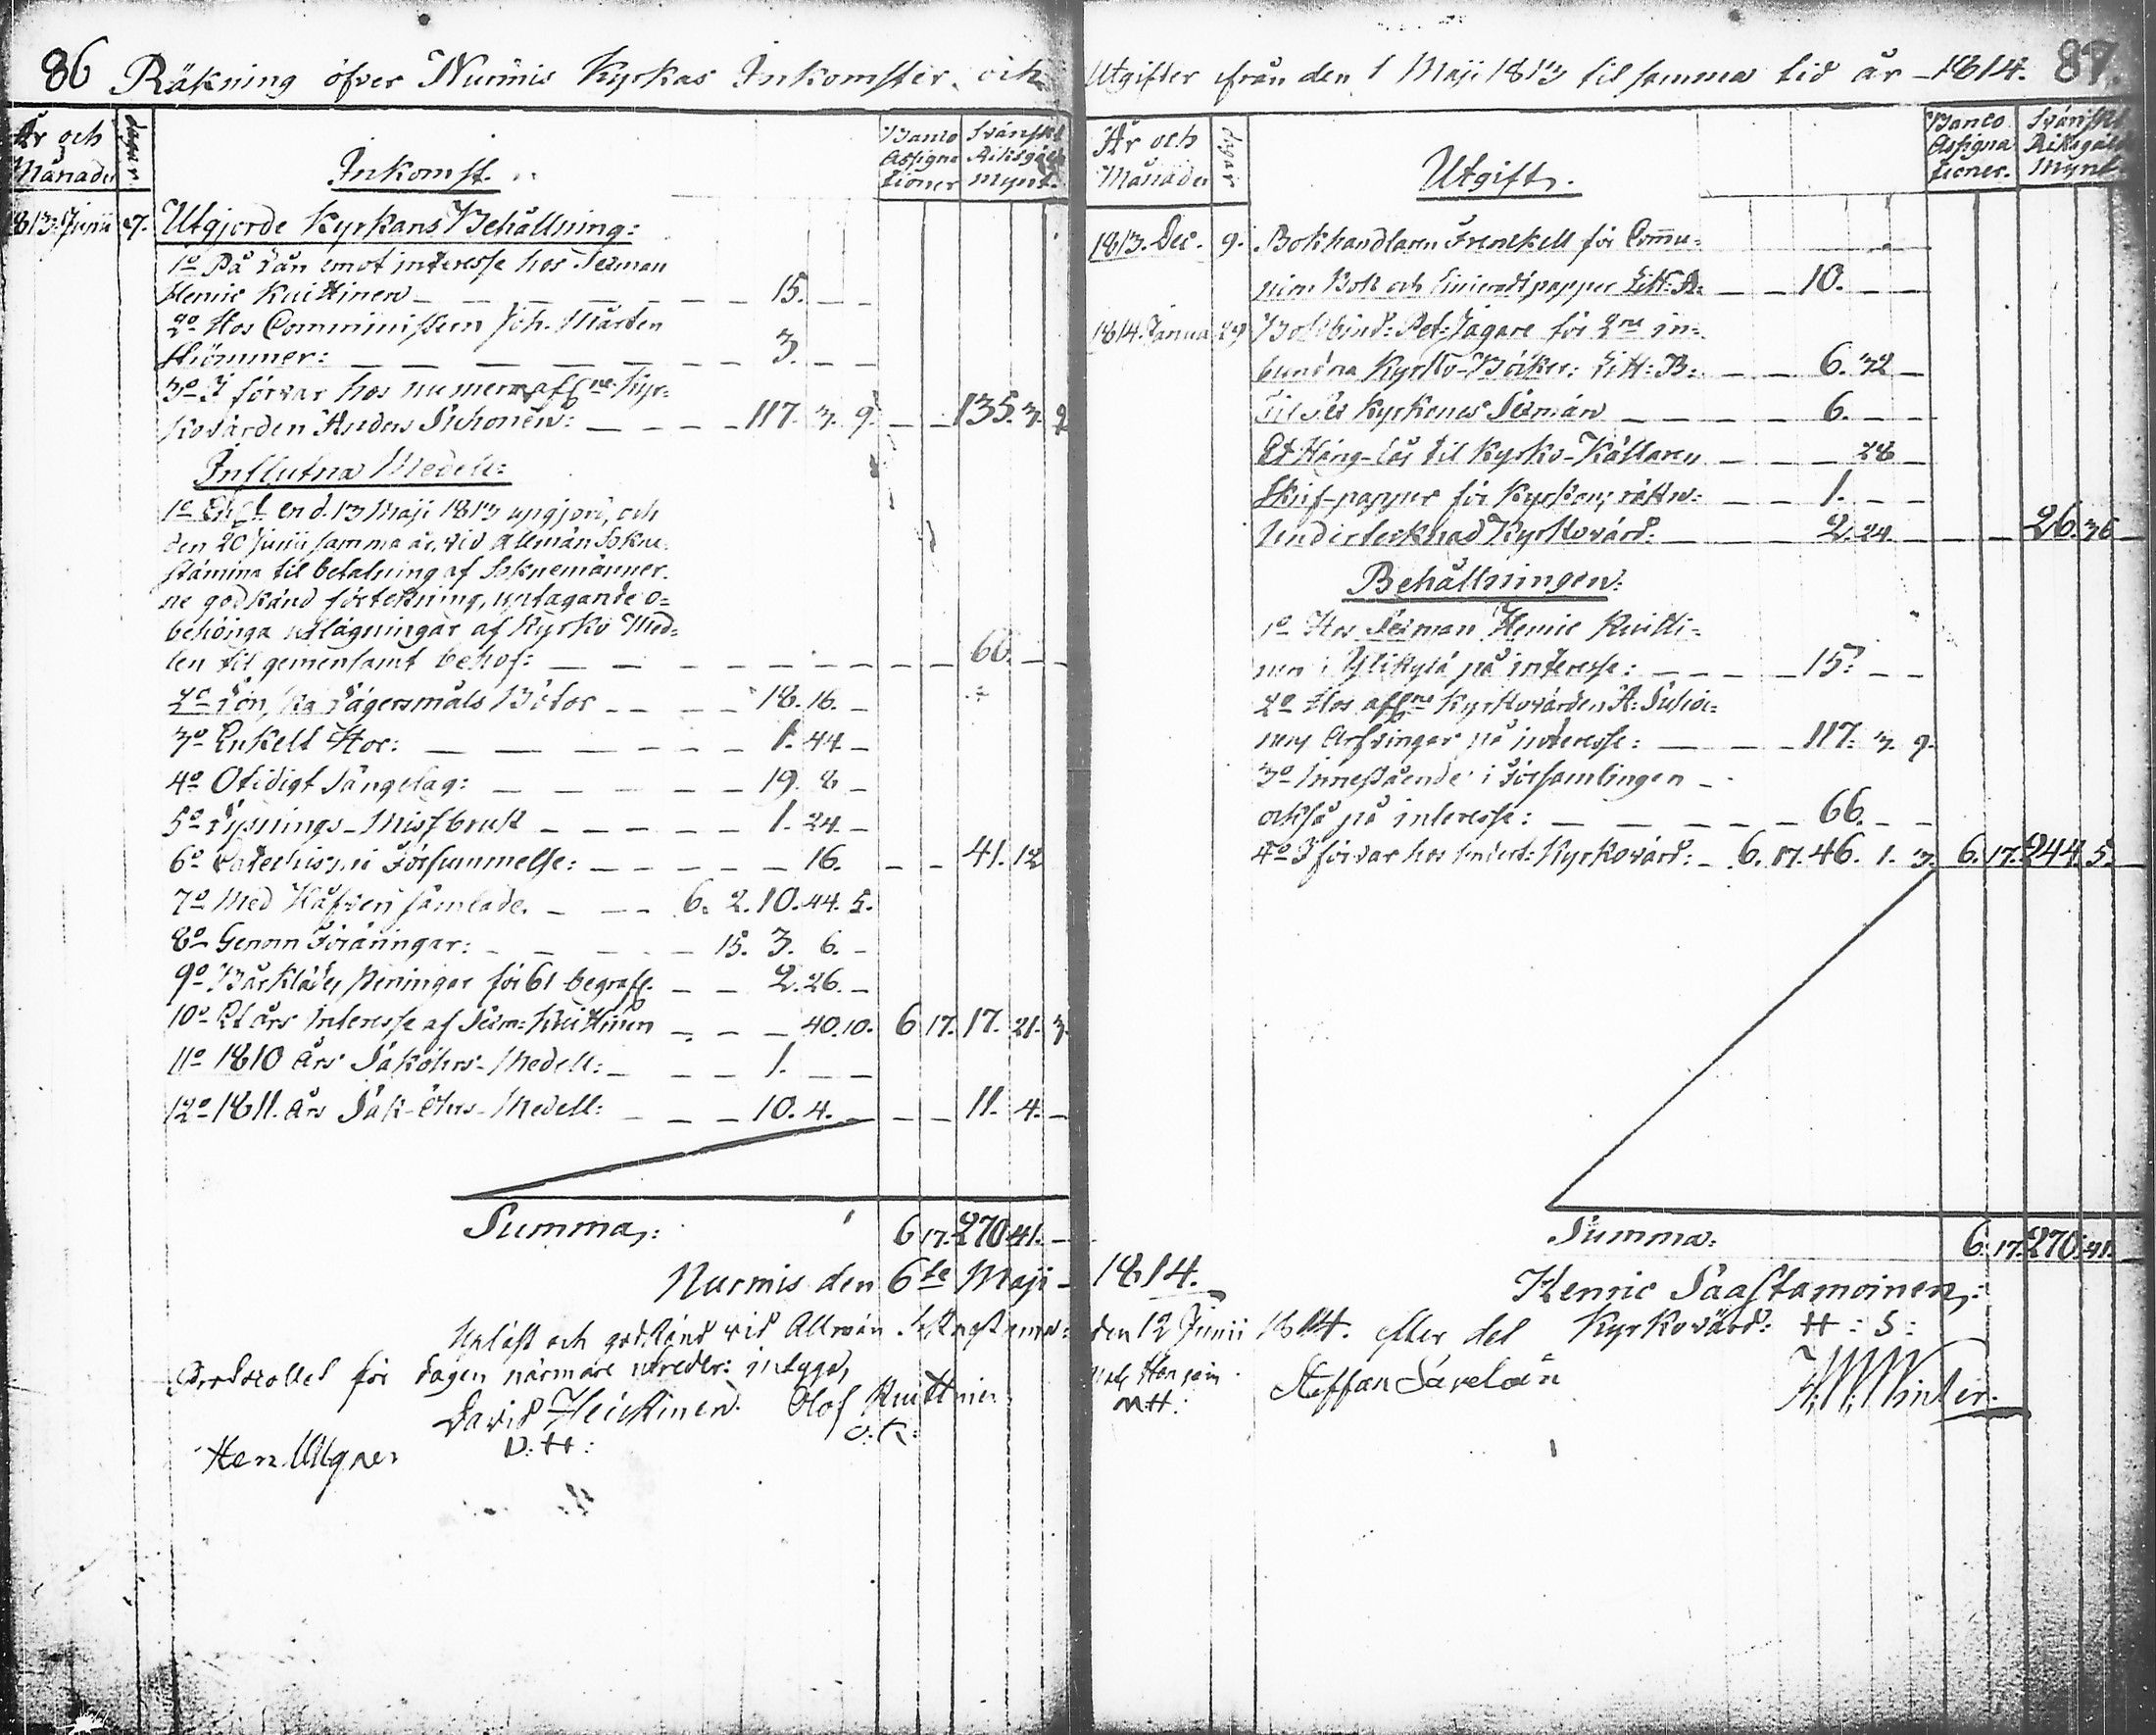 86 Räkning öfver Nurmis Kyrkas Inkomster och
År och
Månader
dagar
Inkomst.
Banco
Assigna
tioner
Svänskt
Riksgäld
Mynt.
1813. Junii 7. Utgjorde Kyrkans Behållning:
1o På lån emot interesse hos
Henric Kuittinen 15.
2o Hos Joh. Mårten
3.
3o I förvar hos numera afl:ne Kyr-
kovärden Anders Sichonen: 117. 3. 9. 135. 3. 9
Influtna Medel:
1o En d. 13 Maji 1813 upgjord, och
den 20 Junii samma år, vid Allmän Sokne-
stämma til betalning af Soknemänner-
ne godkänd förtekning, uptagande o-
behöriga utlägningar af Kyrko Med-
len til gemensamt behof: 66.
2o Lön,ka Lägersmåls Böter 18. 16.
3o Enkelt Hor: 1. 44.
4o Otidigt Sängelag: 19. 8
5o Lysnings-Missbruk 1. 24.
6o Catechismi Försummelse: 16. 41. 12
7o Med Håfven samlade. 6. 2. 10. 44. 5.
8o Genom Föräningar: 15. 3. 6.
9o Bårkläds penningar för 61 begrafn. 2. 26.
10o Et års Interesse af Kuittinen 40. 10. 6 17. 17. 21. 3.
11o 1810 års Saköhrs-Medell: 1.
12o 1811. års Sak-öhrs-Medell: 10. 4. 11. 4.
Summa: 6 17. 270 41.
Nurmis den 6te Maji
Upläst och godkänd vid Allmän Soknestämma
Protocollet för dagen närmare utreder: intyga,
David Heickinen. Olof Kuittinen
D: H: O: K:
Hen
Utgifter ifrån den 1 Maji 1813 til samma tid år 1814. 87.
År och
Månader
dagar
Utgift.
Banco
Assigna
tioner.
Svänskt
Riksgäld
Mynt
1813. Dec. 9. Bokhandlaren Frenckell för Commu-
nion Bok och papper Litt: A: 10.
1814. Janua 29 Bokbind: Pet: Jägare för 2ne in-
bundna Kyrko-Böcker: Litt: B: 6. 32
Til Kyrkones 6.
Et Häng-lås til Kyrko-Källaren 28
Skrif-papper för Kyrkones räkn: 1.
Undertecknad Kyrkovärd: 2. 24. 26. 36
Behållningen:
1o Hos Henric Kuitti-
nen i Ylikylä på interesse: 15.
2o Hos afl:ne Kyrkovärden A: Sicho-
nens Arfvingar på interesse: 117. 3. 9.
3o Innestående i Församlingen
också på interesse: 66.
4o I förvar hos undert: Kyrkovärd: 6. 17. 46. 1. 3. 6. 17. 244. 5.
Summa: 6. 17. 270. 41.
1814. Henric Saastamoinen,
den 12 Junii 1814. efter det Kyrkovärd: H: S:
Steffan Savelain
MH:
Winter.